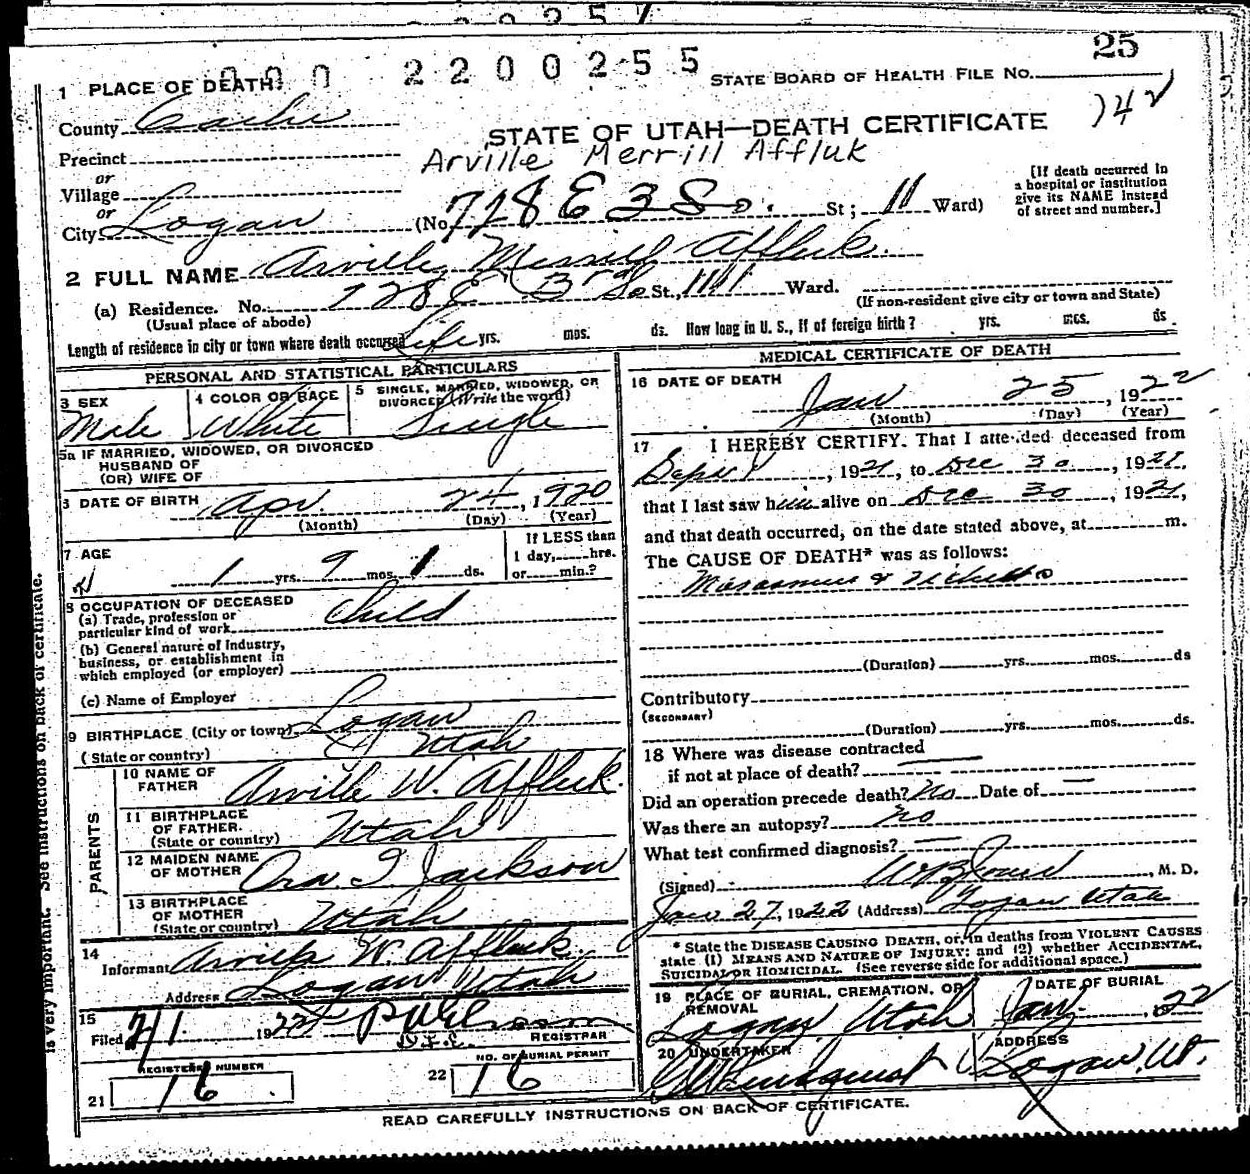 25
000 2200255
STATE BOARD OF HEALTH FILE NO.
1 PLACE OF DEATH
County Cache
742
STATE OF UTAH—DEATH CERTIFICATE
Precinct
Arville Merrill Affluk
or
Village
or
City Logan (No. 728 E 3 So. St; 11 Ward)
[If death occurred in
a hospital or institution
give its NAME instead
of street and number.]
2 FULL NAME Arville Merrill Affleck.
(a) Residence. No. 728 E 3rd So St., 11 Ward.
(Usual place of abode)
(If non-resident give city or town and State)
Length of residence in city or town where death occurred Life yrs. mos. ds. How long in U. S., if of foreign birth? yrs. mos. ds
PERSONAL AND STATISTICAL PARTICULARS
3 SEX
Male
4 COLOR OR RACE
White
5 SINGLE, MARRIED, WIDOWED, OR
DIVORCED (Write the word)
Single
5a IF MARRIED, WIDOWED, OR DIVORCED
HUSBAND OF
(OR) WIFE OF
6 DATE OF BIRTH Apr. 24, 1920
(Month) (Day) (Year)
7 AGE
1 yrs. 9 mos. 1 ds.
If LESS than
1 day, hrs.
or min.?
8 OCCUPATION OF DECEASED
(a) Trade, profession or
particular kind of work
Child
(b) General nature of industry,
business, or establishment in
which employed (or employer)
(c) Name of Employer
9 BIRTHPLACE (City or town) Logan
(State or country) Utah
PARENTS
10 NAME OF
FATHER
Arville W. Affleck.
11 BIRTHPLACE
OF FATHER.
(State or country)
Utah
12 MAIDEN NAME
OF MOTHER
Ora. I Jackson
13 BIRTHPLACE
OF MOTHER
(State or country)
Utah
14
Informant Arville W. Affleck.
Address Logan Utah
15
Filed 2/1 1922
REGISTRAR
REGISTERED NUMBER
21 16
NO. OF BURIAL PERMIT
22 16
MEDICAL CERTIFICATE OF DEATH
16 DATE OF DEATH
Jan 25, 1922
(Month) (Day) (Year)
17 I HEREBY CERTIFY. That I attended deceased from
Sept 1, 1921, to Dec 30, 1921.
that I last saw him alive on Dec 30, 1921,
and that death occurred, on the date stated above, at m.
The CAUSE OF DEATH* was as follows:
Marasmus & Rickets
(Duration) yrs. mos. ds
Contributory
(SECONDARY)
(Duration) yrs. mos. ds.
18 Where was disease contracted
if not at place of death? —
Did an operation precede death? No Date of —
Was there an autopsy? No
What test confirmed diagnosis? —
(Signed) , M. D.
Jan 27, 1922 (Address) Logan Utah
* State the DISEASE CAUSING DEATH, or, in deaths from VIOLENT CAUSES
state (1) MEANS AND NATURE OF INJURY; and (2) whether ACCIDENTAL,
SUICIDAL or HOMICIDAL. (See reverse side for additional space.)
19 PLACE OF BURIAL, CREMATION, OR
REMOVAL
Logan, Utah
DATE OF BURIAL
Jan. , 22
20 UNDERTAKER
ADDRESS
Logan, Ut.
READ CAREFULLY INSTRUCTIONS ON BACK OF CERTIFICATE.
is very important. See instructions on back of certificate.